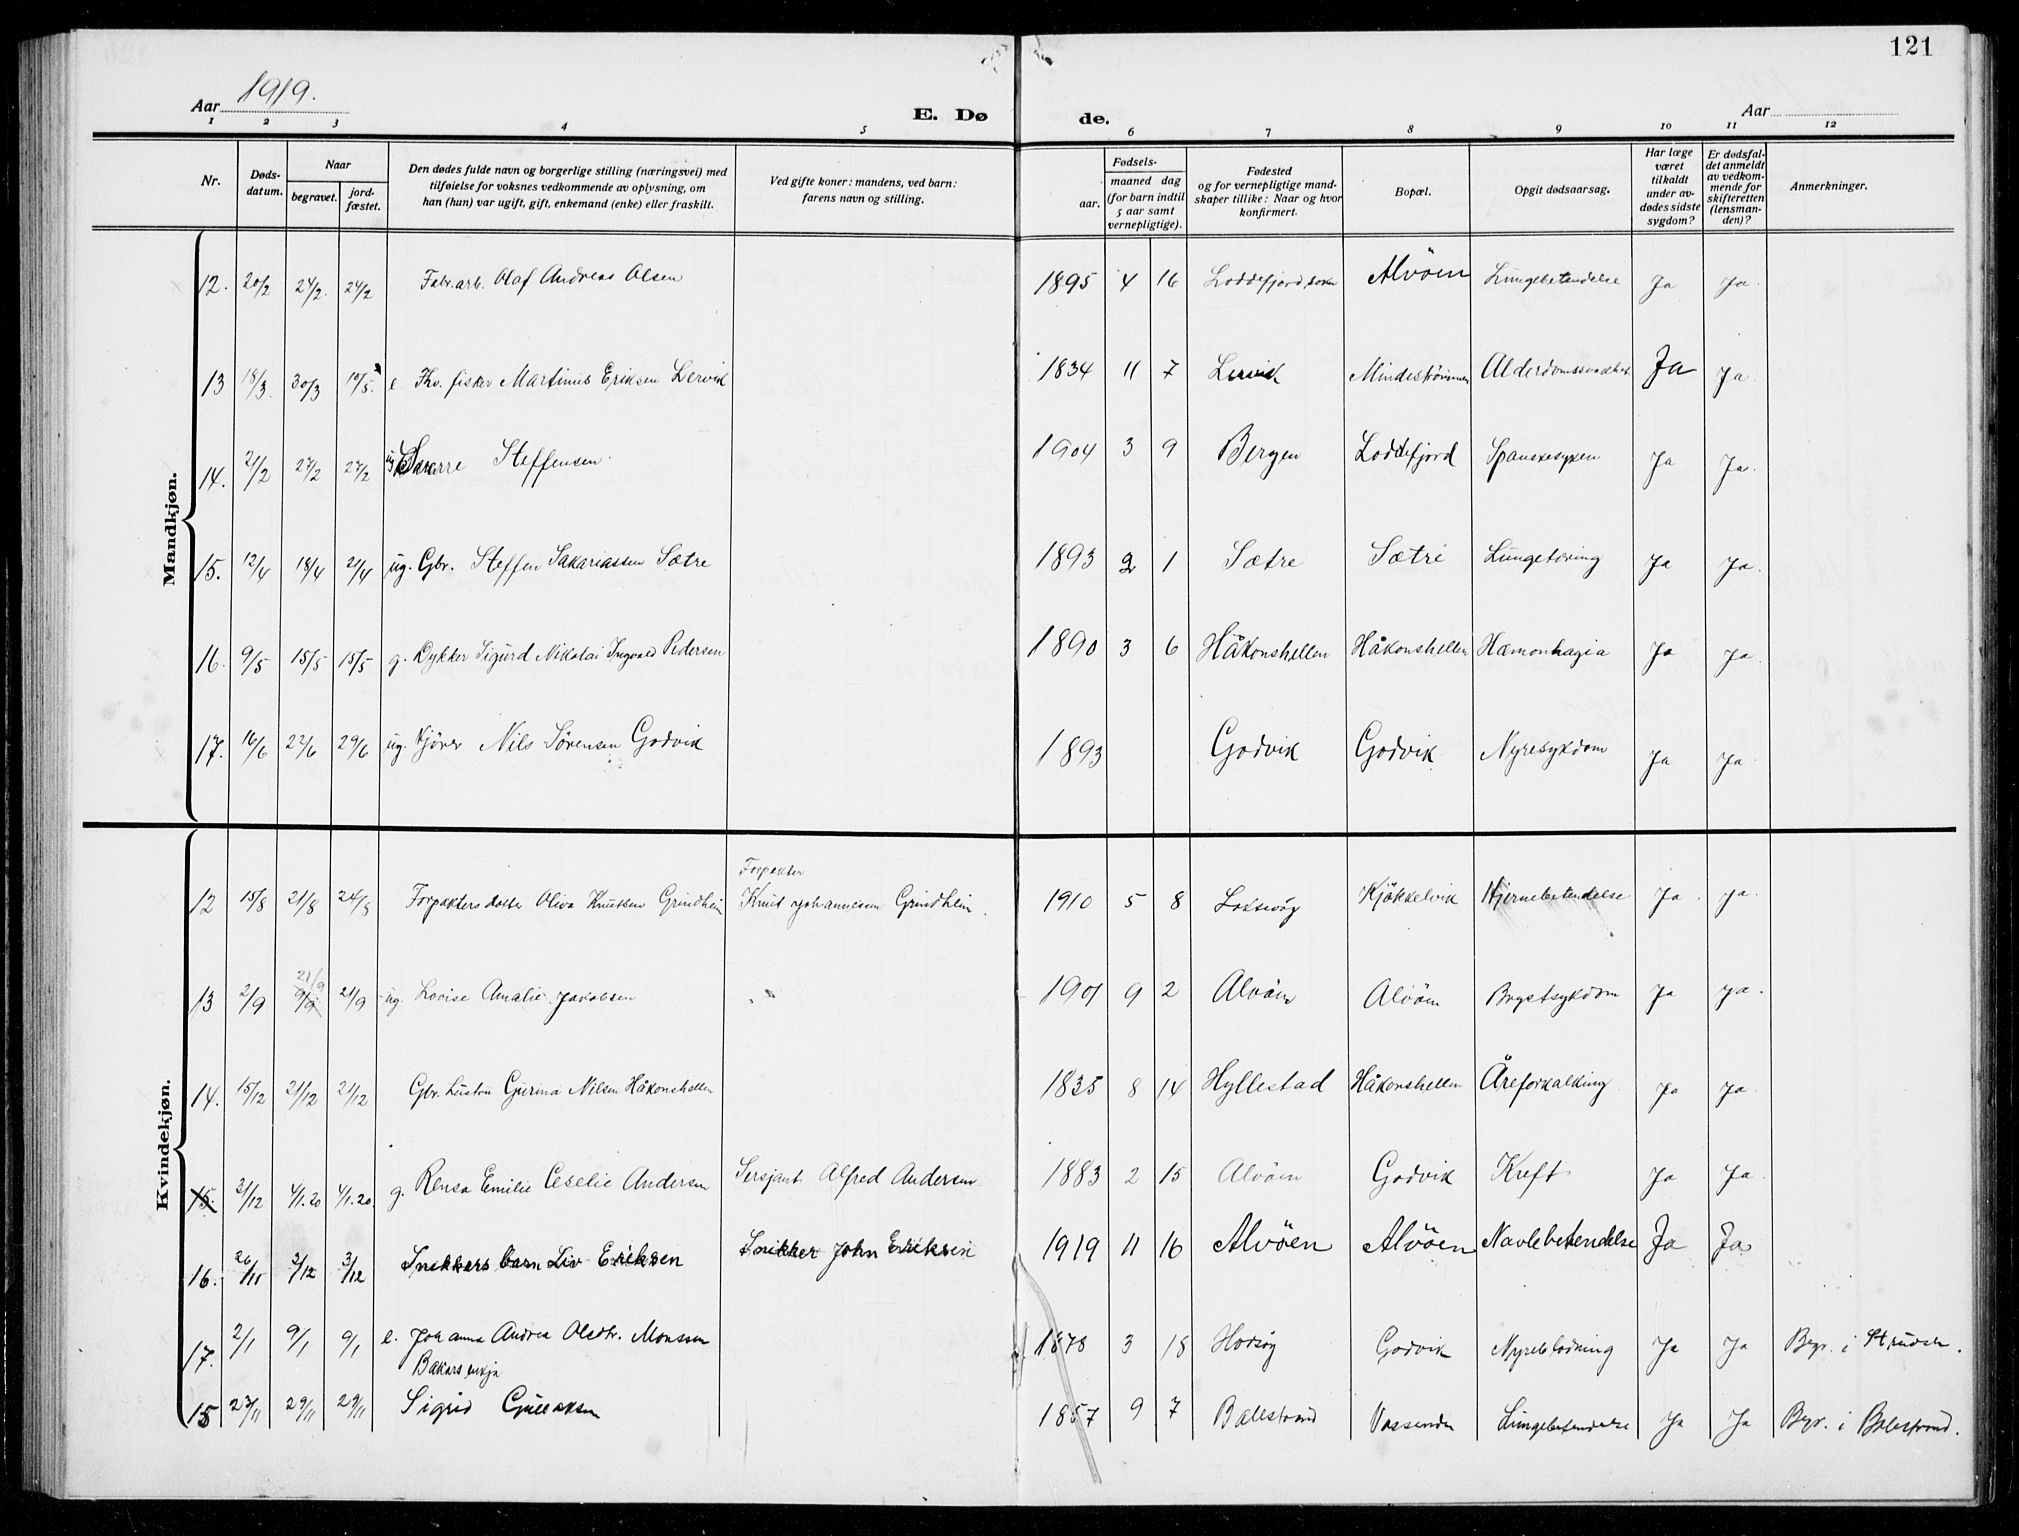 121
Aar 1919.
E. Dø de.
Aar
1 2 3 4 5 6 7 8 9 10 11 12
Nr.
Døds-
datum.
Naar
begravet.
jord-
fæstet.
Den dødes fulde navn og borgerlige stilling (næringsvei) med
tilføielse for voksnes vedkommende av oplysning, om
han (hun) var ugift, gift, enkemand (enke) eller fraskilt.
Ved gifte koner: mandens, ved barn:
farens navn og stilling.
Fødsels-
aar.
maaned dag
(for barn indtil
5 aar samt
vernepligtige).
Fødested
og for vernepligtige mand-
skaper tillike: Naar og hvor
konfirmert.
Bopæl.
Opgit dødsaarsag.
Har læge
været
tilkaldt
under av-
dødes sidste
sygdom?
Er dødsfal-
det anmeldt
av vedkom-
mende for
skifteretten
(lensman-
den)?
Anmerkninger.
Mandkjøn.
12. 20/2 24/2. 24/2 Fabr.arb. Olaf Andreas Olsen 1895 4 16 Loddefjord sokn Alvøen Lungebetendelse Ja Ja.
13 18/3. 30/3 10/5. e. Fhv. fisker Martinus Eriksen Lervik 1834 11 7 Lervik Mindestrømmen Alderdomssvakhet Ja Ja.
14. 21/2 27/2 27/2 ug. Sverre Steffensen. 1904 3 9 Bergen Loddefjord Spanskesyken Ja Ja.
15. 12/4 18/4 21/4 ug. Gbr. Steffen Sakariassen Sætre 1893 2 1 Sætre Sætre Lungetæring Ja Ja.
16. 9/5 15/5 15/5 g. Dykker Sigurd Nikolai Ingvald Pedersen 1890 3 6 Håkonshellen Håkonshellen Hæmorrhagia Ja Ja.
17. 16/6 22/6 29/6 ug. Kjører Nils Sørensen Godvik 1893 Godvik Godvik Nyresykdom Ja Ja.
Kvindekjøn.
Forpakter
12 15/8 21/8 24/8 Forpakters datter Oliva Knutsen Grindheim Knut Johannesen Grindheim. 1910 5 8 Laksevåg Kjøkkelvik Hjernebetendelse Ja. Ja.
21/9
13 2/9 9/9 21/9 ug. Lovise Amalie Jakobsen 1901 9 2 Alvøen Alvøen Brystsykdom Ja Ja.
14. 15/12 21/12 21/12 Gbr. hustru Gurina Nilsen Håkonshellen 1835 8 14 Hyllestad Håkonshellen Åreforkalkning Ja Ja.
15. 31/12 4/1.20 4/1.20. g. Rensa Emilie Ceselie Andersen Sersjant Alfred Andersen 1883 2 15 Alvøen Godvik Kreft Ja Ja.
16. 26/11 3/12 3/12 Snekkers barn Liv Eriksen Snikker John Eriksen 1919 11 16 Alvøen Alvøen Navlebetendelse Ja Ja
17. 2/1 9/1 9/1 e. Johanna Andrea Olsdtr. Monssen 1878 3 18 Godvik Nyreblødning Ja Ja Begr. i
Bakers enkja
15 23/11 29/11 29/11 Sigrid Gullaksen 1857 9 7 Balestrand Vassenden Lungebetendelse Ja Ja Begr. i Balestrand.